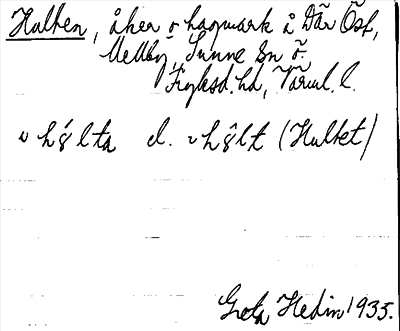 Hulten, åker o hagmark å Där Öst,
Mellby, Sunne sn ö.
Fryksd. hd, Värml. l.
hǵlta el. hĝlt (Hultet)
Greta Hedin 1935.